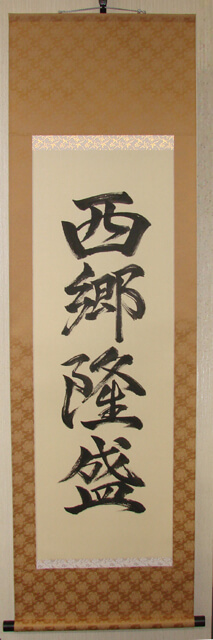 西郷隆盛